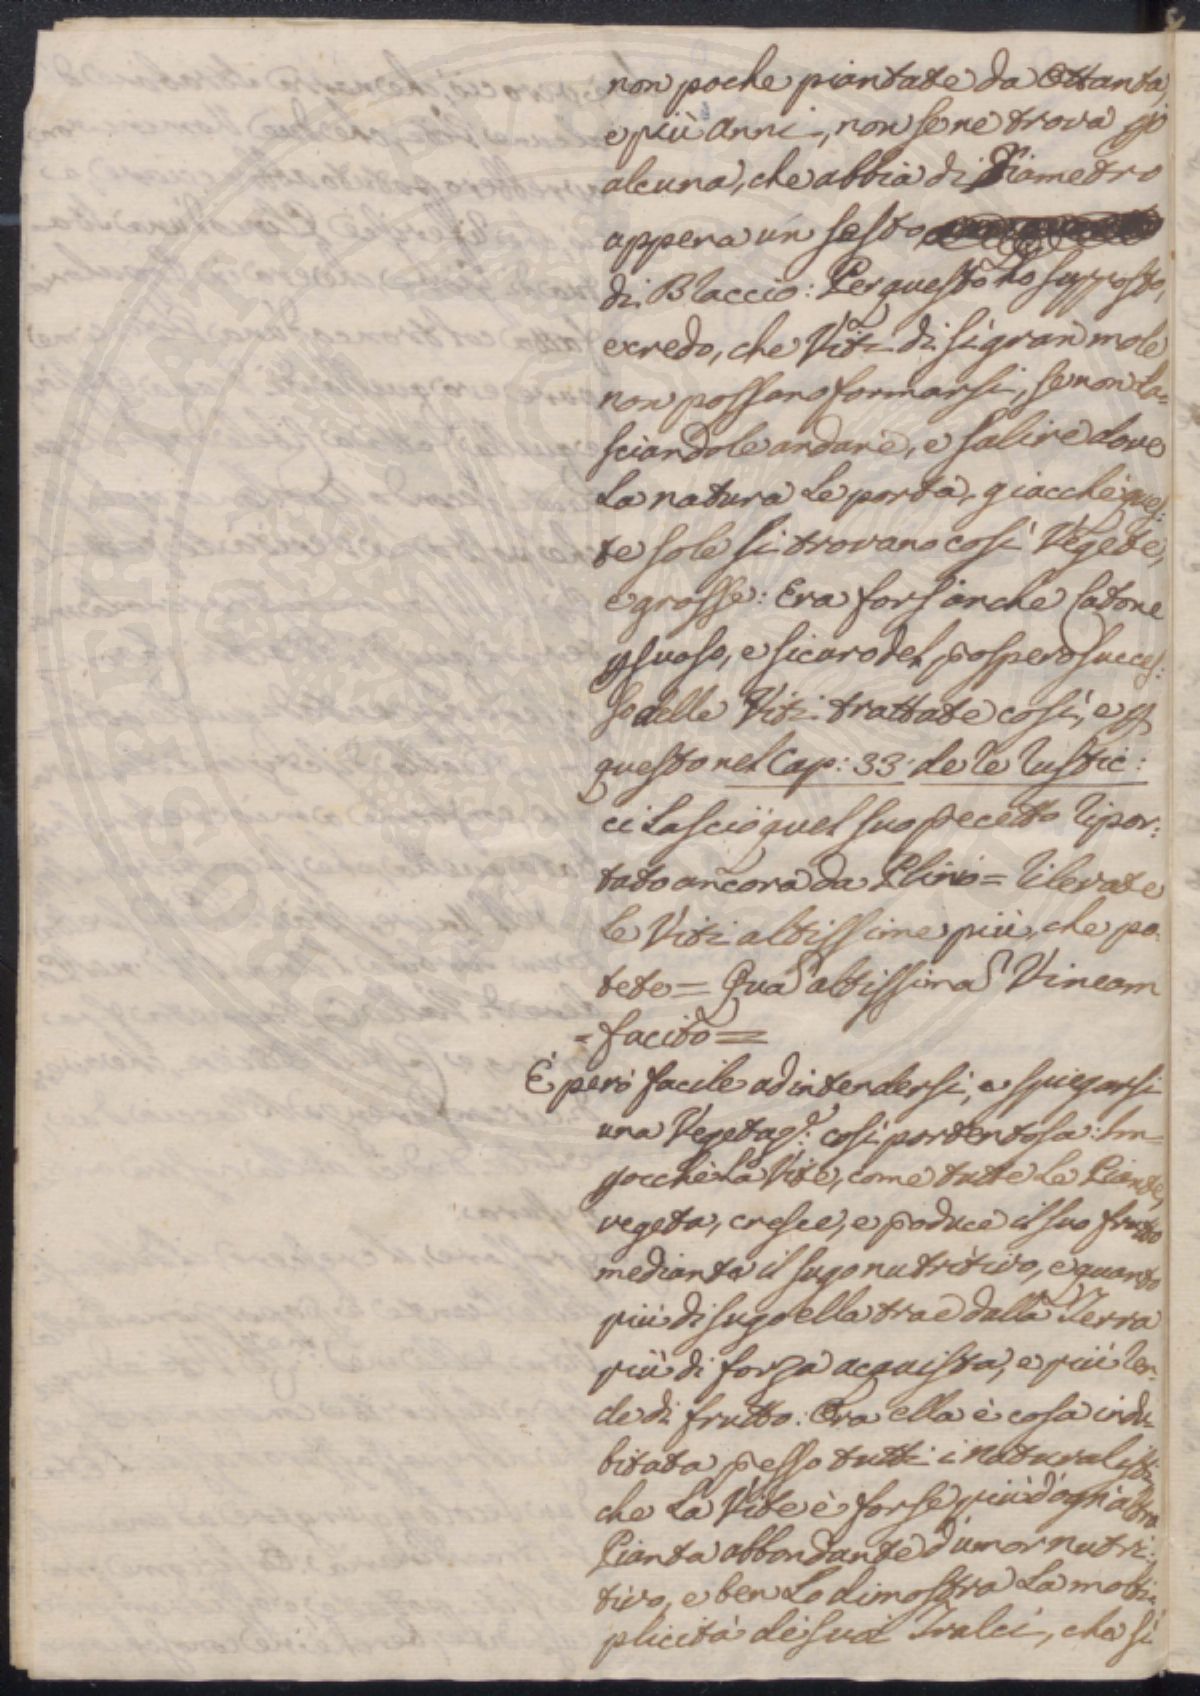 non poche piantate da Ottanta,
e più Anni, non se ne trova pò
alcuna, che abbia di Diametro
appena un sesto
di Blaccio: Per questo hò supposto,
e credo, che Viti di sì gran mole
non possano formarsi, se non la=
sciandole andare, e salire dove
la natura le porta, giacchè ques:
te sole si trovano così Vegete,
e grosse: Era fors' anche Catone
psuaso, e sicuro del pospero succes:
so delle Viti trattate così, e p
questo nel Cap: 33: de re rustic:
ci lasciò quel suo pecetto ripor:
tato ancora da Plinio = rilevate
le Viti altissime più, che po:
tete = Qua altissima Vineam
= facito =
È però facile ad intendersi, e spiegarsi
una Vegetaz.: così portentosa: Im=
pocchè la Vite, come tutte le Piante,
vegeta, cresce, e poduce il suo frutto
mediante il sugo nutritivo, e quanto
più di sugo ella trae dalla Terra
più di forza acquista, e più ren:
de di frutto: Ora ella è cosa indu=
bitata pesso tutti i Naturalisti,
che la Vite è forse più d'ogn'altra
Pianta abbondante d'umor nutri:
tivo, e ben lo dimostra la molti=
plicità de suoi Tralci, che si